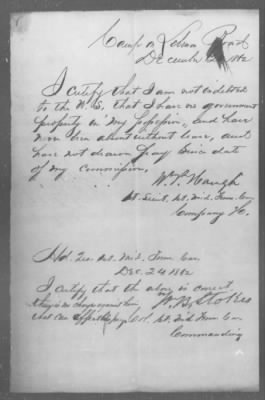 Camp on Lebanon Road
December 1862
I certify that I am not indebted
to the U. S. that I have no government
property in my possession, and have
never been absent without leave, and
have not drawn pay since date
of my commission.
W. P. Hough
1st Lieut. 1st Mid. Tenn. Cav.
Company H.
Hd. Qrs. 1st Mid. Tenn. Cav.
Dec. 24 1862
I certify that the above is correct
there is no charge against him
that can effect his pay
W. B. Stokes
Col. 1st Mid Tenn Cav.
Commanding